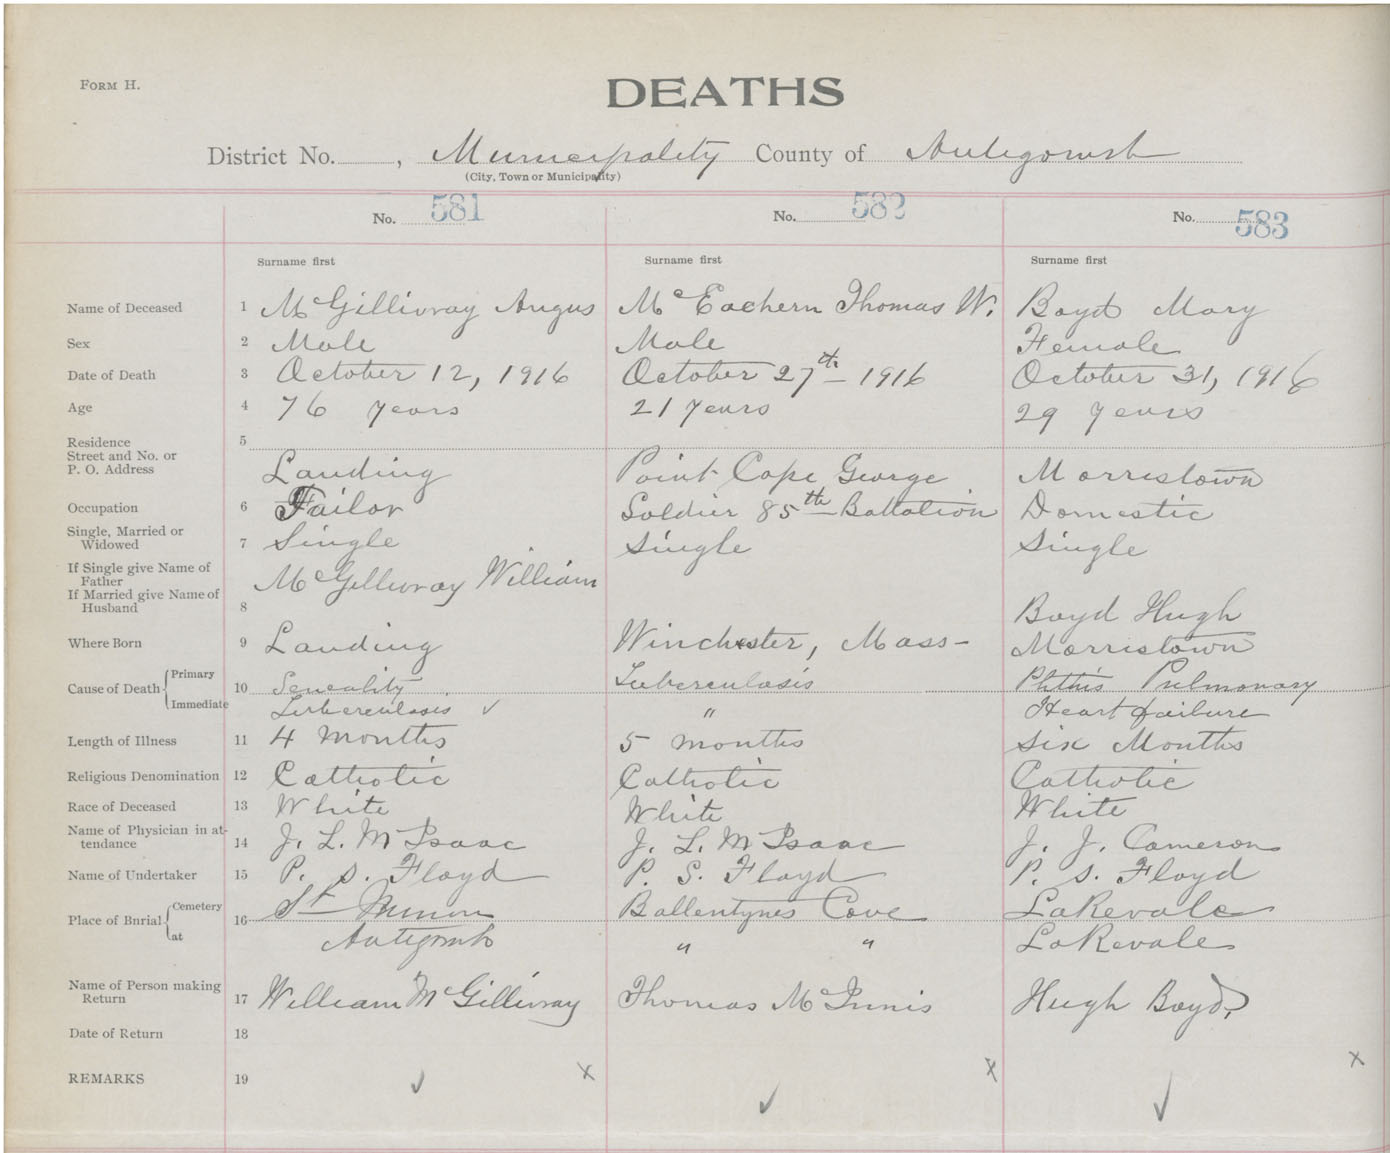 FORM H.
DEATHS
District No. , Municipality County of Antigonish
(City, Town or Municipality)
No. 581 No. 582 No. 583
Surname first Surname first Surname first
Name of Deceased 1 McGillivray Angus McEachern Thomas W. Boyd Mary
Sex 2 Male Male Female
Date of Death 3 October 12, 1916 October 27th 1916 October 31, 1916
Age 4 76 years 21 years 29 years
Residence 5
Street and No. or
P. O. Address Landing Point Cape George Morristown
Occupation 6 Tailor Soldier 85th Battalion Domestic
Single, Married or
Widowed 7 Single Single Single
If Single give Name of
Father McGillivray William
If Married give Name of
Husband 8 Boyd Hugh
Where Born 9 Landing Winchester, Mass- Morristown
Cause of Death Primary 10 Seneality Tuberculosis Phthis Pulmonary
Immediate Tuberculosis ✓ " Heart failure
Length of Illness 11 4 months 5 months Six Months
Religious Denomination 12 Catholic Catholic Catholic
Race of Deceased 13 White White White
Name of Physician in at-
tendance 14 J. L. McIsaac J. L. McIsaac J. J. Cameron
Name of Undertaker 15 P. S. Floyd P. S. Floyd P. S. Floyd
Place of Bnrial Cemetery 16 St Ballentynes Cove Lakevale
at Antigonish " " Lakevale
Name of Person making
Return 17 William McGillivray Thomas McInnis Hugh Boyd,
Date of Return 18
REMARKS 19 ✓ x ✓ x ✓ x